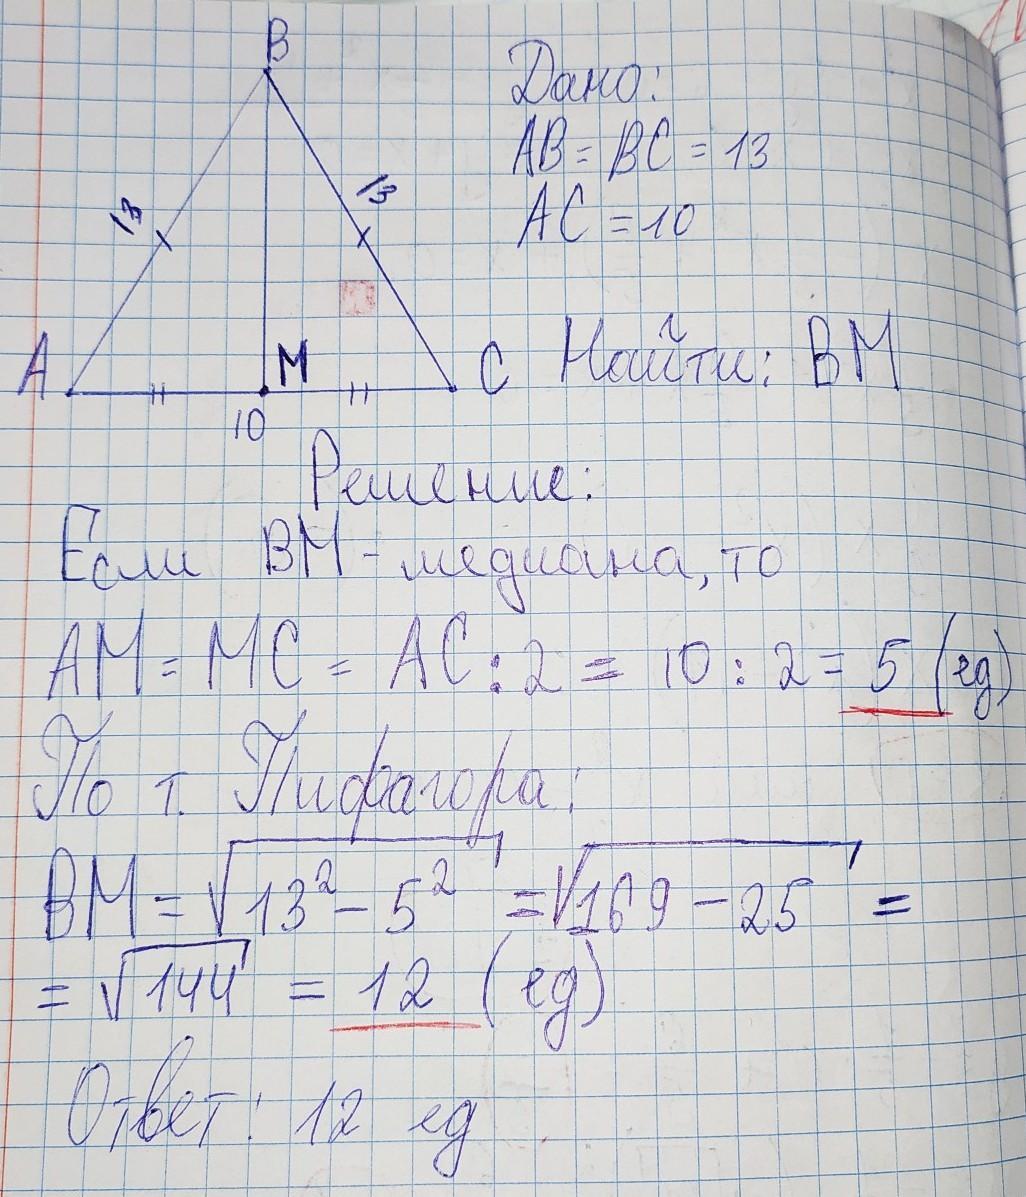 B
Дано:
AB = BC = 13
AC = 10
13
13
A
M
C
10
Найти: BM
Решение:
Если BM - медиана, то
AM = MC = AC : 2 = 10 : 2 = 5 (ед)
По т. Пифагора:
BM = √13² - 5² = √169 - 25 =
= √144 = 12 (ед)
Ответ: 12 ед